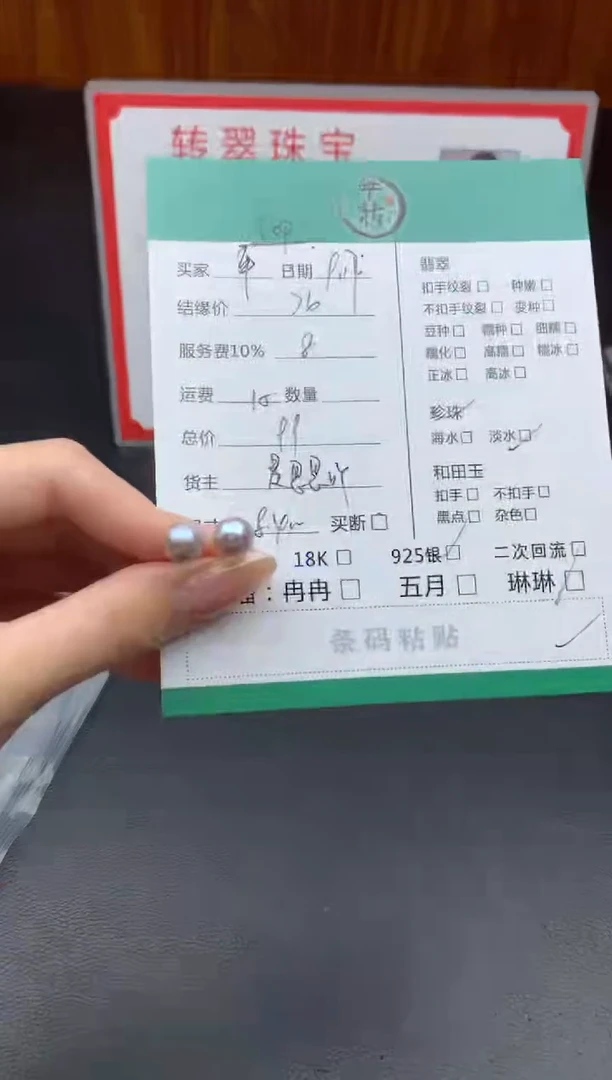 转翠珠宝
平
买家 日期
结缘价 76
服务费10% 8
运费 15 数量
总价 99
货主
买断
18K 925银 二次回流
：冉冉 五月 琳琳
条码粘贴
翡翠
扣手纹裂 种嫩
不扣手纹裂 变种
豆种 糯种 细糯
糯化 高糯 糯冰
正冰 高冰
珍珠
海水 淡水
和田玉
扣手 不扣手
黑点 杂色